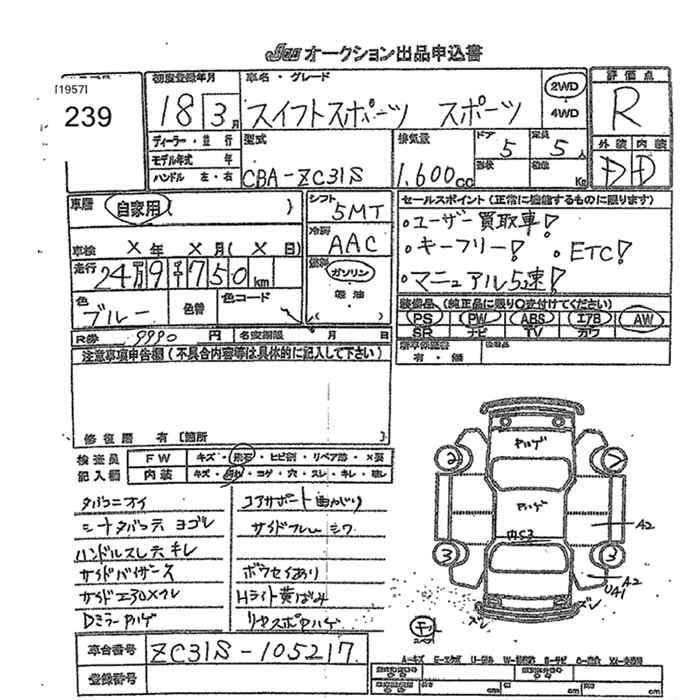 JU オークション出品申込書
[1957]
239
初度登録年月
18 3月
車名・グレード
スイフトスポーツ スポーツ
2WD
4WD
評価点
R
外装 内装
D D
ディーラー・並行
モデル年式 年
ハンドル 左・右
型式
CBA-ZC31S
排気量
1,600cc
ドア
5
形状
定員
5人
積載
Kg
車歴
自家用 ( )
シフト
5MT
冷房
AAC
燃料
ガソリン
軽油
( )
車検 X年 X月 (X日)
走行 24万9千750km
色
ブルー
色替
色コード
R券 9990円
名変期限 月 日
セールスポイント (正常に機能するものに限ります)
・ユーザー買取車!
・キーフリー! ・ETC!
・マニュアル5速!
装備品 (純正品に限り○を付けてください)
PS PW ABS エアB AW
SR ナビ TV カワ
新車保証書
有・無
注意事項申告欄 (不具合内容等は具体的に記入して下さい)
修復歴 有 [箇所 ]
検査員
記入欄
FW キズ・飛石・ヒビ割・リペア跡・X要
内装 キズ・汚れ・コゲ・穴・スレ・キレ・破レ
タバコニオイ
シートタバコ穴 ヨゴレ
ハンドルスレ穴 キレ
サイドバイザーキズ
Dミラーハゲ
コアサポート曲がり
サイドフレームシワ
ボウセイあり
Hライト黄ばみ
リヤスポハゲ
ハゲ
ハゲ
2
7
3
3
A2
A2
UA1
ズレ
ズレ
車台番号 ZC31S-105217
登録番号
A-キズ E-エクボ U-凹み W-補修跡 S-サビ C-腐食 XX-交換済
cm cm cm